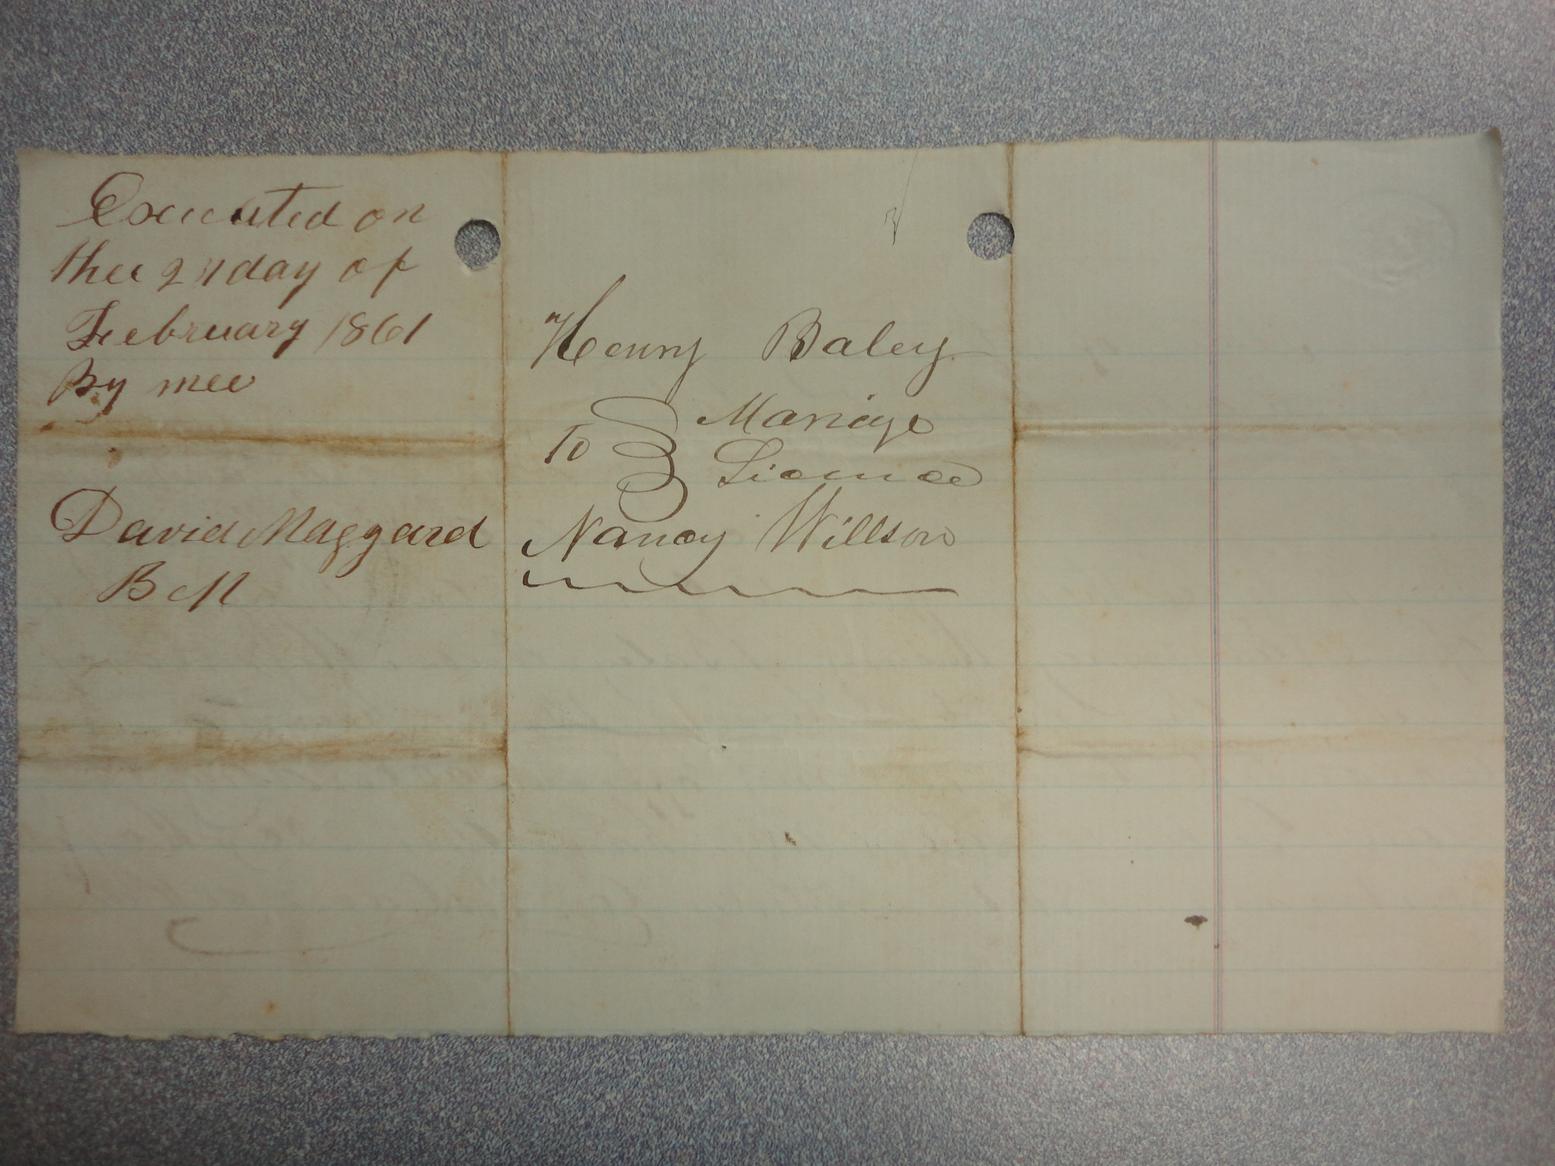 Executed on
thee 24 day of
February 1861
By mee
David Maggard
B M
Henry Baley
To } Mariage
Licence
Nancy Willson